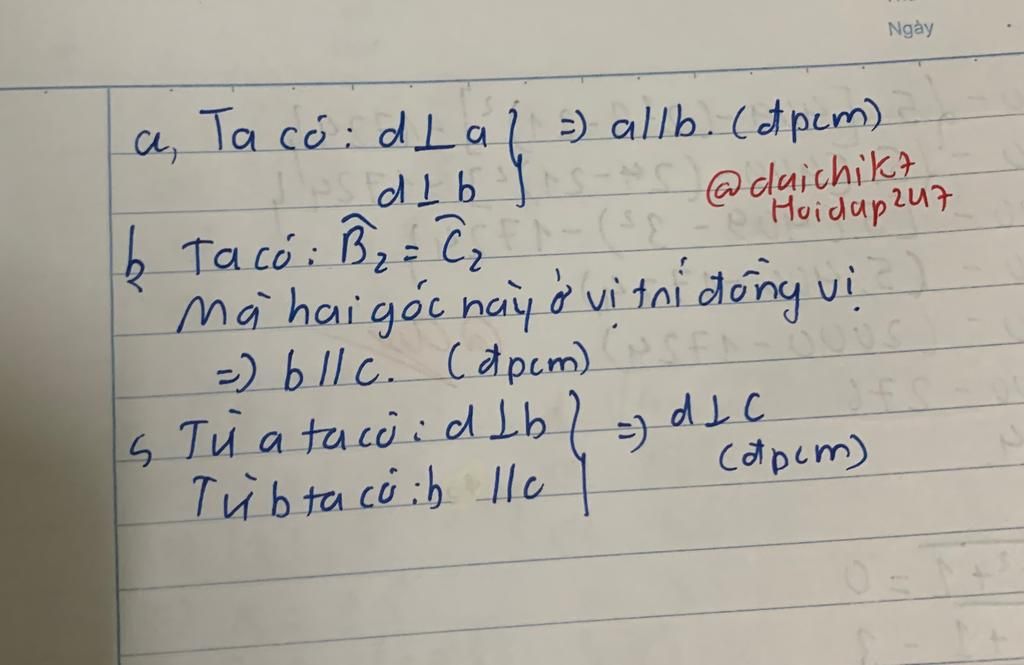 Ngày
a, Ta có: d⊥a } => a//b. (đpcm)
d⊥b
@daichik7
Hoidap247
b, Ta có: B̂₂ = Ĉ₂
Mà hai góc này ở vị trí đồng vị
=) b // c. (đpcm)
c, Từ a ta có: d⊥b } =) d⊥c
(đpcm)
Từ b ta có: b //c